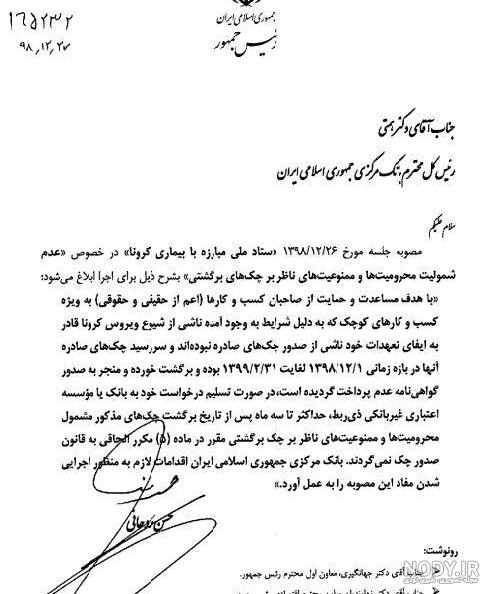 جمهوری اسلامی ایران
رئیس جمهور
۱۶۵۲۳۲
۹۸/۱۲/۲۷
جناب آقای دکتر همتی
رئیس کل محترم بانک مرکزی جمهوری اسلامی ایران
سلام علیکم
مصوبه جلسه مورخ ۱۳۹۸/۱۲/۲۶ «ستاد ملی مبارزه با بیماری کرونا» در خصوص «عدم
شمولیت محرومیت‌ها و ممنوعیت‌های ناظر بر چک‌های برگشتی» بشرح ذیل برای اجرا ابلاغ می‌شود:
«با هدف مساعدت و حمایت از صاحبان کسب و کارها (اعم از حقیقی و حقوقی) به ویژه
کسب و کارهای کوچک که به دلیل شرایط به وجود آمده ناشی از شیوع ویروس کرونا قادر به
ایفای تعهدات خود ناشی از صدور چک‌های صادره نبوده‌اند و سررسید چک‌های صادره
آنها در بازه زمانی ۱۳۹۸/۱۲/۱ لغایت ۱۳۹۹/۲/۳۱ بوده و برگشت خورده و منجر به صدور
گواهی‌نامه عدم پرداخت گردیده است، در صورت تسلیم درخواست خود به بانک یا مؤسسه
اعتباری غیربانکی ذی‌ربط، حداکثر تا سه ماه پس از تاریخ برگشت چک‌های مذکور مشمول
محرومیت‌ها و ممنوعیت‌های ناظر بر چک برگشتی مقرر در ماده (۵) مکرر الحاقی به قانون
صدور چک نمی‌گردند. بانک مرکزی جمهوری اسلامی ایران اقدامات لازم به منظور اجرایی
شدن مفاد این مصوبه را به عمل آورد.»
حسن روحانی
رونوشت:
جناب آقای دکتر جهانگیری، معاون اول محترم رئیس جمهور.
جناب آقای دکتر
NODY.IR